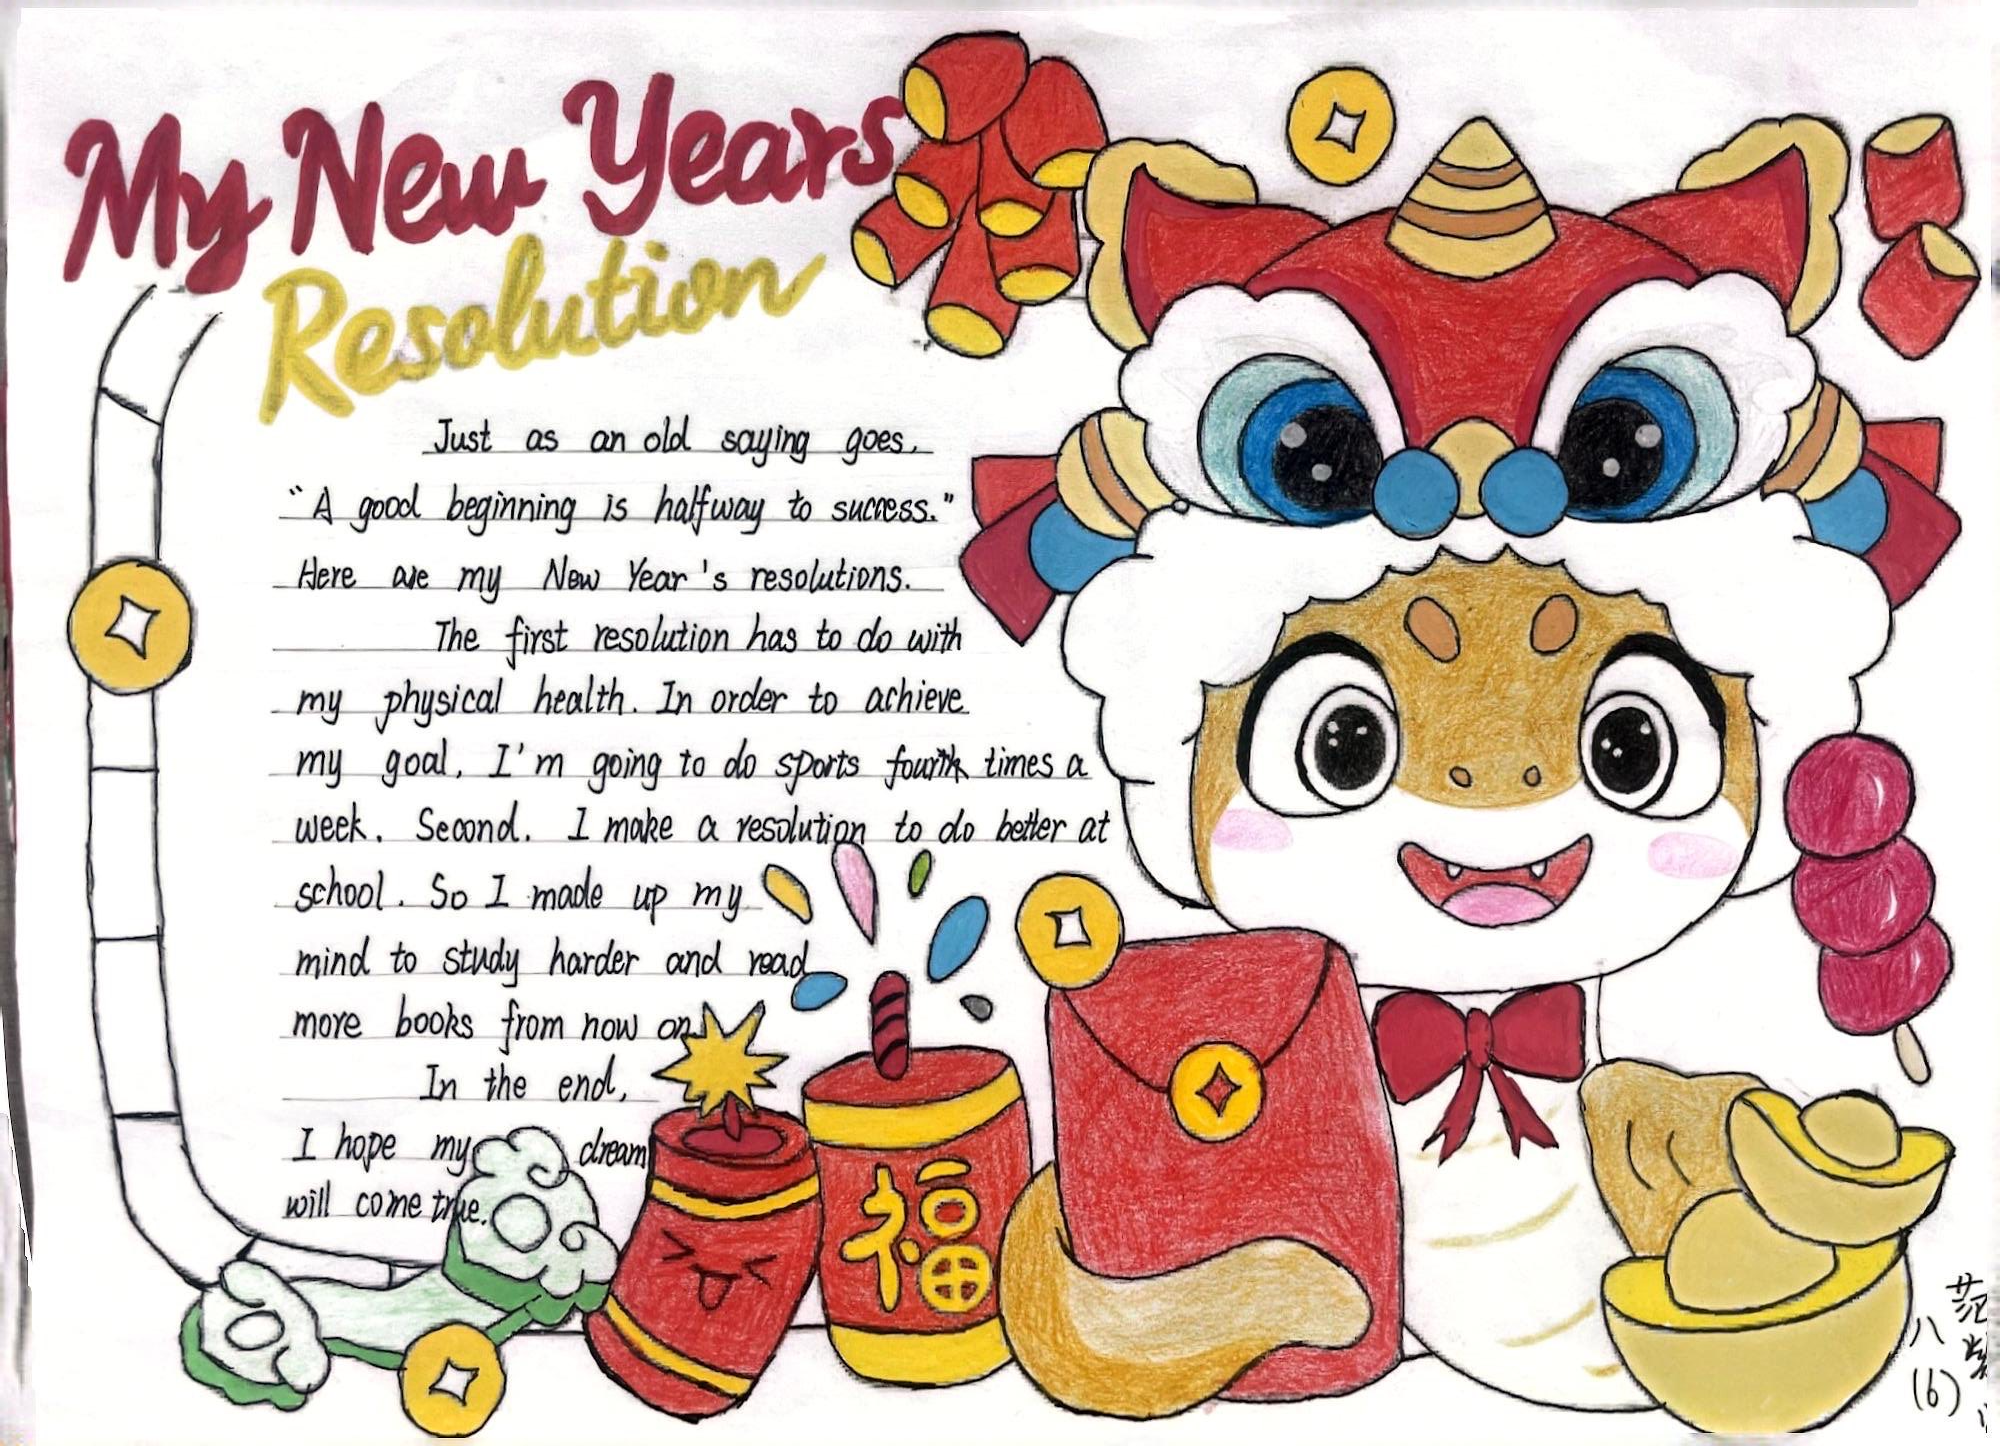 My New Years
Resolution
Just as an old saying goes,
"A good beginning is halfway to success."
Here are my New Year's resolutions.
The first resolution has to do with
my physical health. In order to achieve
my goal, I'm going to do sports times a
week. Second, I make a resolution to do better at
school. So I made up my
mind to study harder and read
more books from now on.
In the end,
I hope my dream
will come true.
福
范
八
(6)